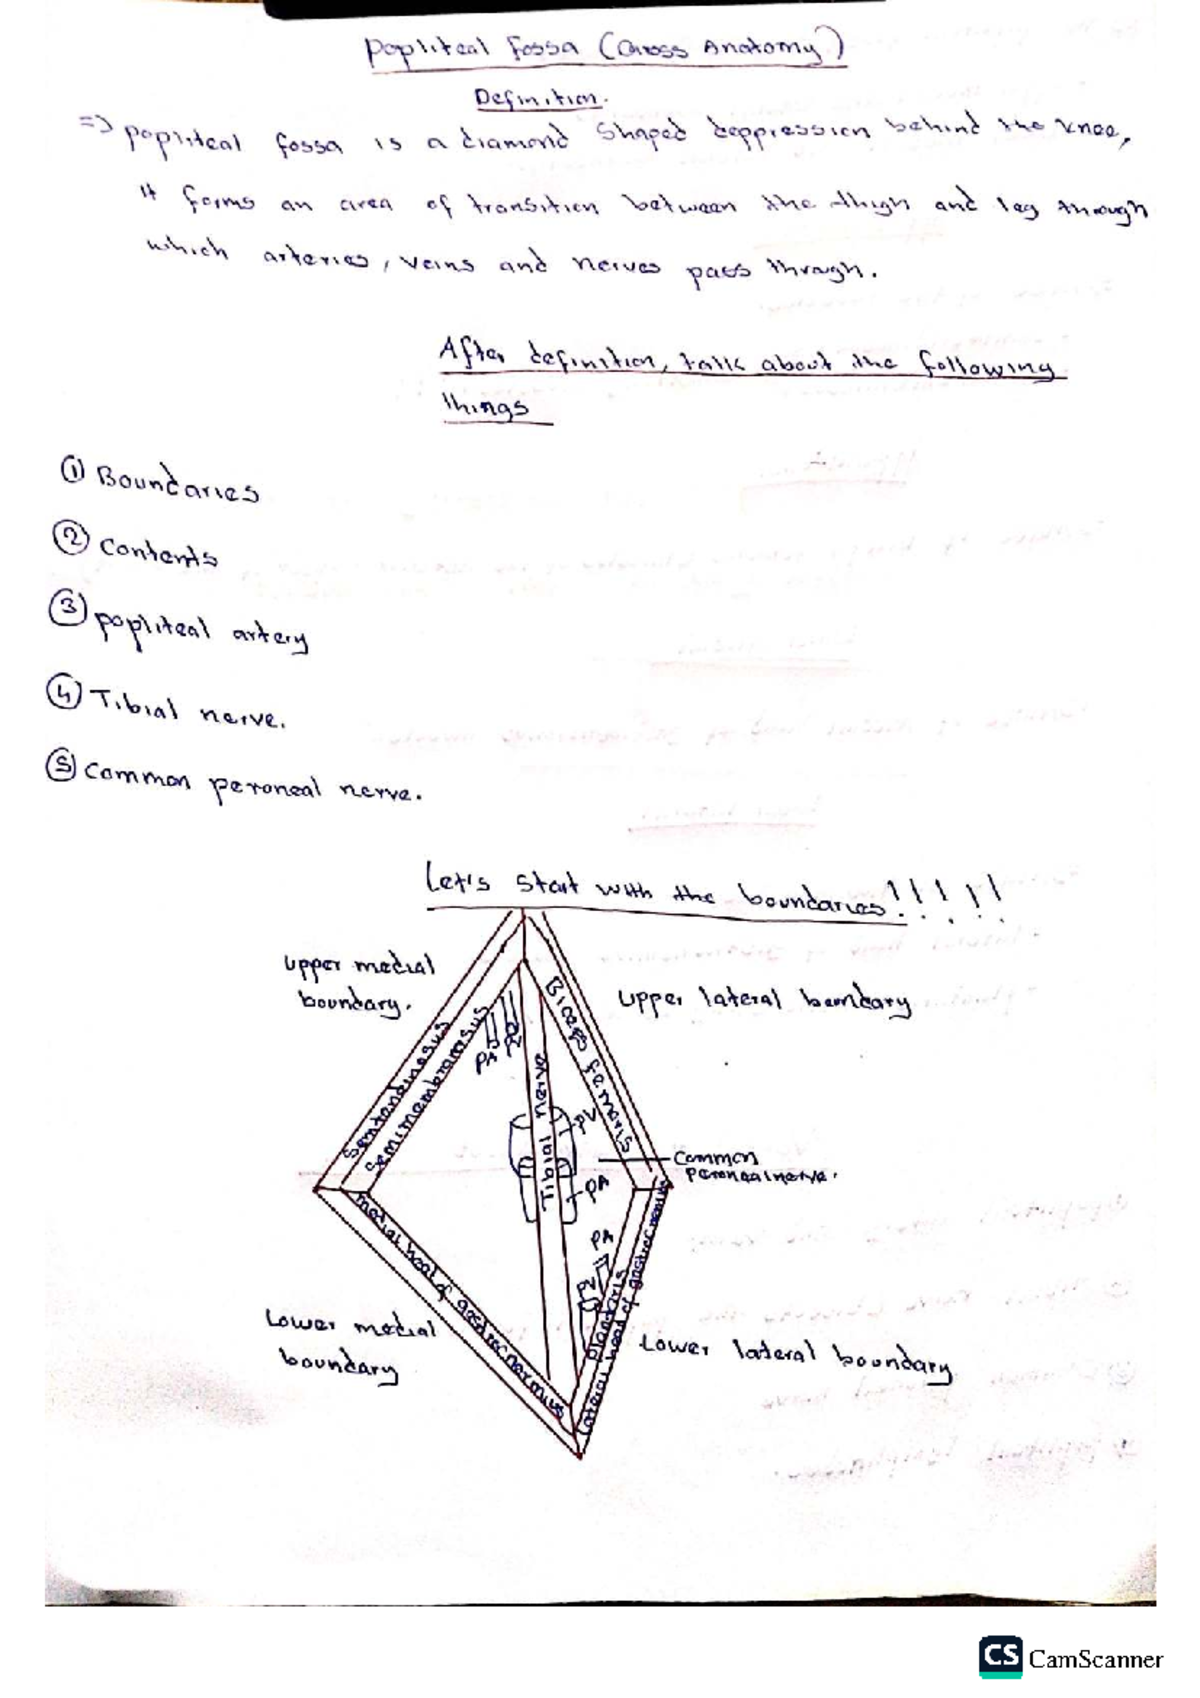 popliteal Fossa (Gross Anatomy)
Definition.
=> popliteal fossa is a diamond shaped deppression behind the knee,
It forms an area of transition between the thigh and leg through
which arteries, veins and nerves pass through.
After definition, talk about the following
things
① Boundaries
② contents
③ popliteal artery
④ Tibial nerve.
⑤ common peroneal nerve.
Let's start with the boundaries!!!!!
upper medial
boundary.
upper lateral boundary
Semitendinosus
Semimembranosus
Biceps femoris
PA
Tibial nerve
PV
PA
common
peroneal nerve.
PA
PV
medial head of gastrocnemius
plantaris
Lateral head of gastrocnemius
Lower medial
boundary
Lower lateral boundary
CS CamScanner